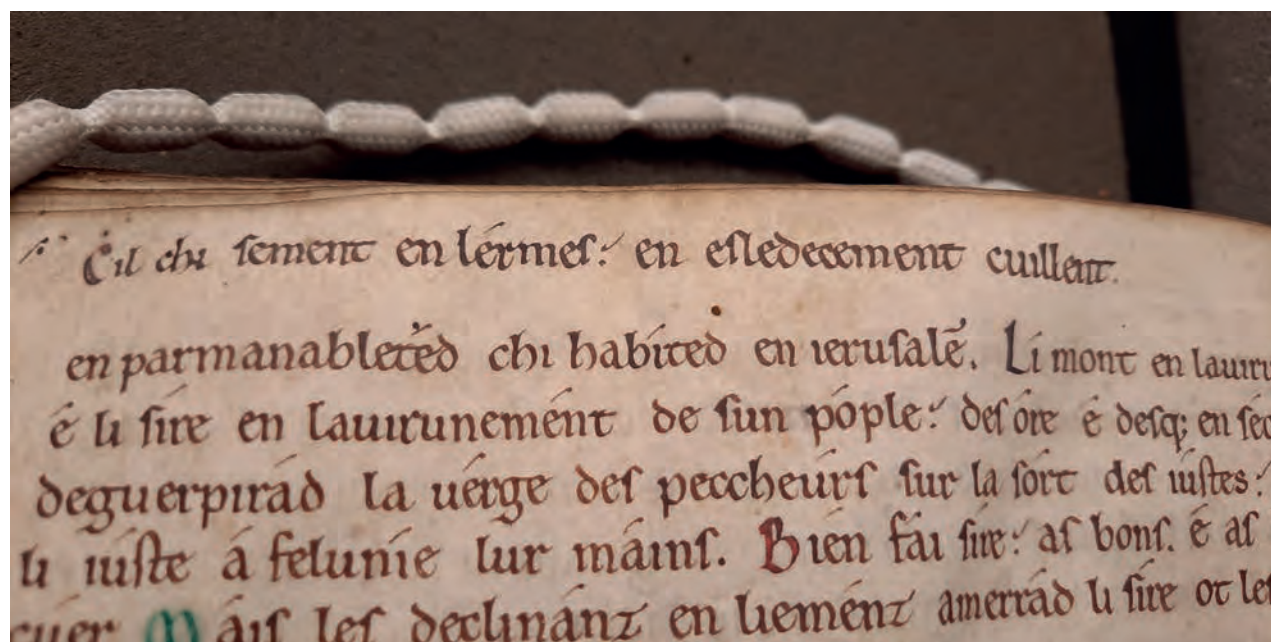 Cil chi sement en lérmes: en esledecement cuillent.
en parmanableted chi habited en ierusalē. Li mont en lauiru
é li sire en lauirunement de sun póple: des ore é desq; en sec
deguerpirád la uérge des peccheúrs sur la sórt des iústes:
li iuste á felunie lur máins. Bien fái sire: as bons. é as
cuer Máis les declinánz en liemént amerrád li sire ot les